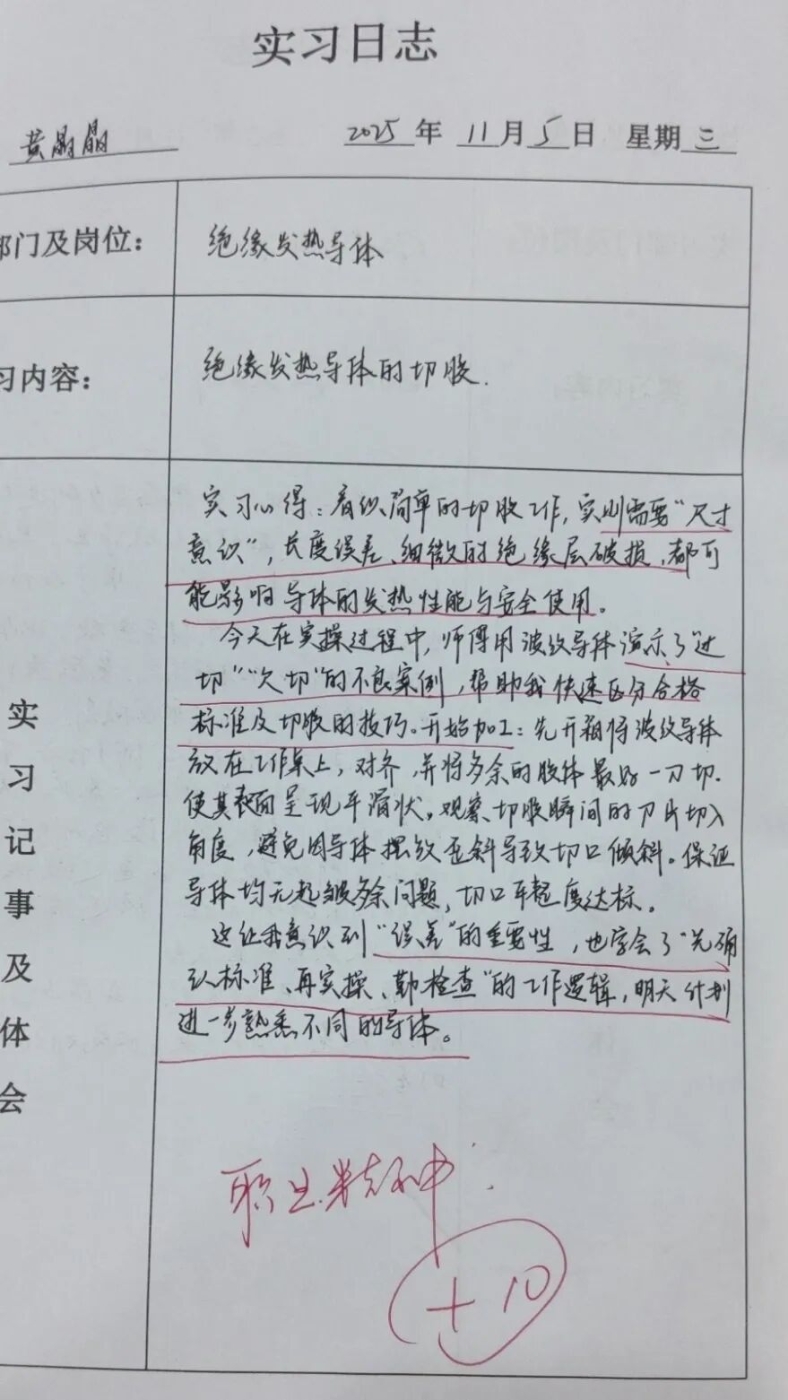 实习日志
黄晶晶 2025年11月5日 星期三
部门及岗位： 绝缘发热导体
习内容： 绝缘发热导体的切胶.
实习记事及体会
实习心得：看似简单的切胶工作，实则需要“尺寸
意识”，长度误差、细微的绝缘层破损，都可
能影响导体的发热性能与安全使用。
今天在实操过程中，师傅用波纹导体演示了“过
切”“欠切”的不良案例，帮助我快速区分合格
标准及切胶的技巧。开始加工：先开箱将波纹导体
放在工作桌上，对齐，并将多余的胶体最好一刀切.
使其表面呈现平滑状。观察切胶瞬间的刀片切入
角度，避免因导体摆放歪斜导致切口倾斜。保证
导体均无起皱多余问题，切口平整度达标。
这让我意识到“误差”的重要性，也学会了“先确
认标准、再实操、勤检查”的工作逻辑，明天计划
进一步熟悉不同的导体。
职业精神.
+10